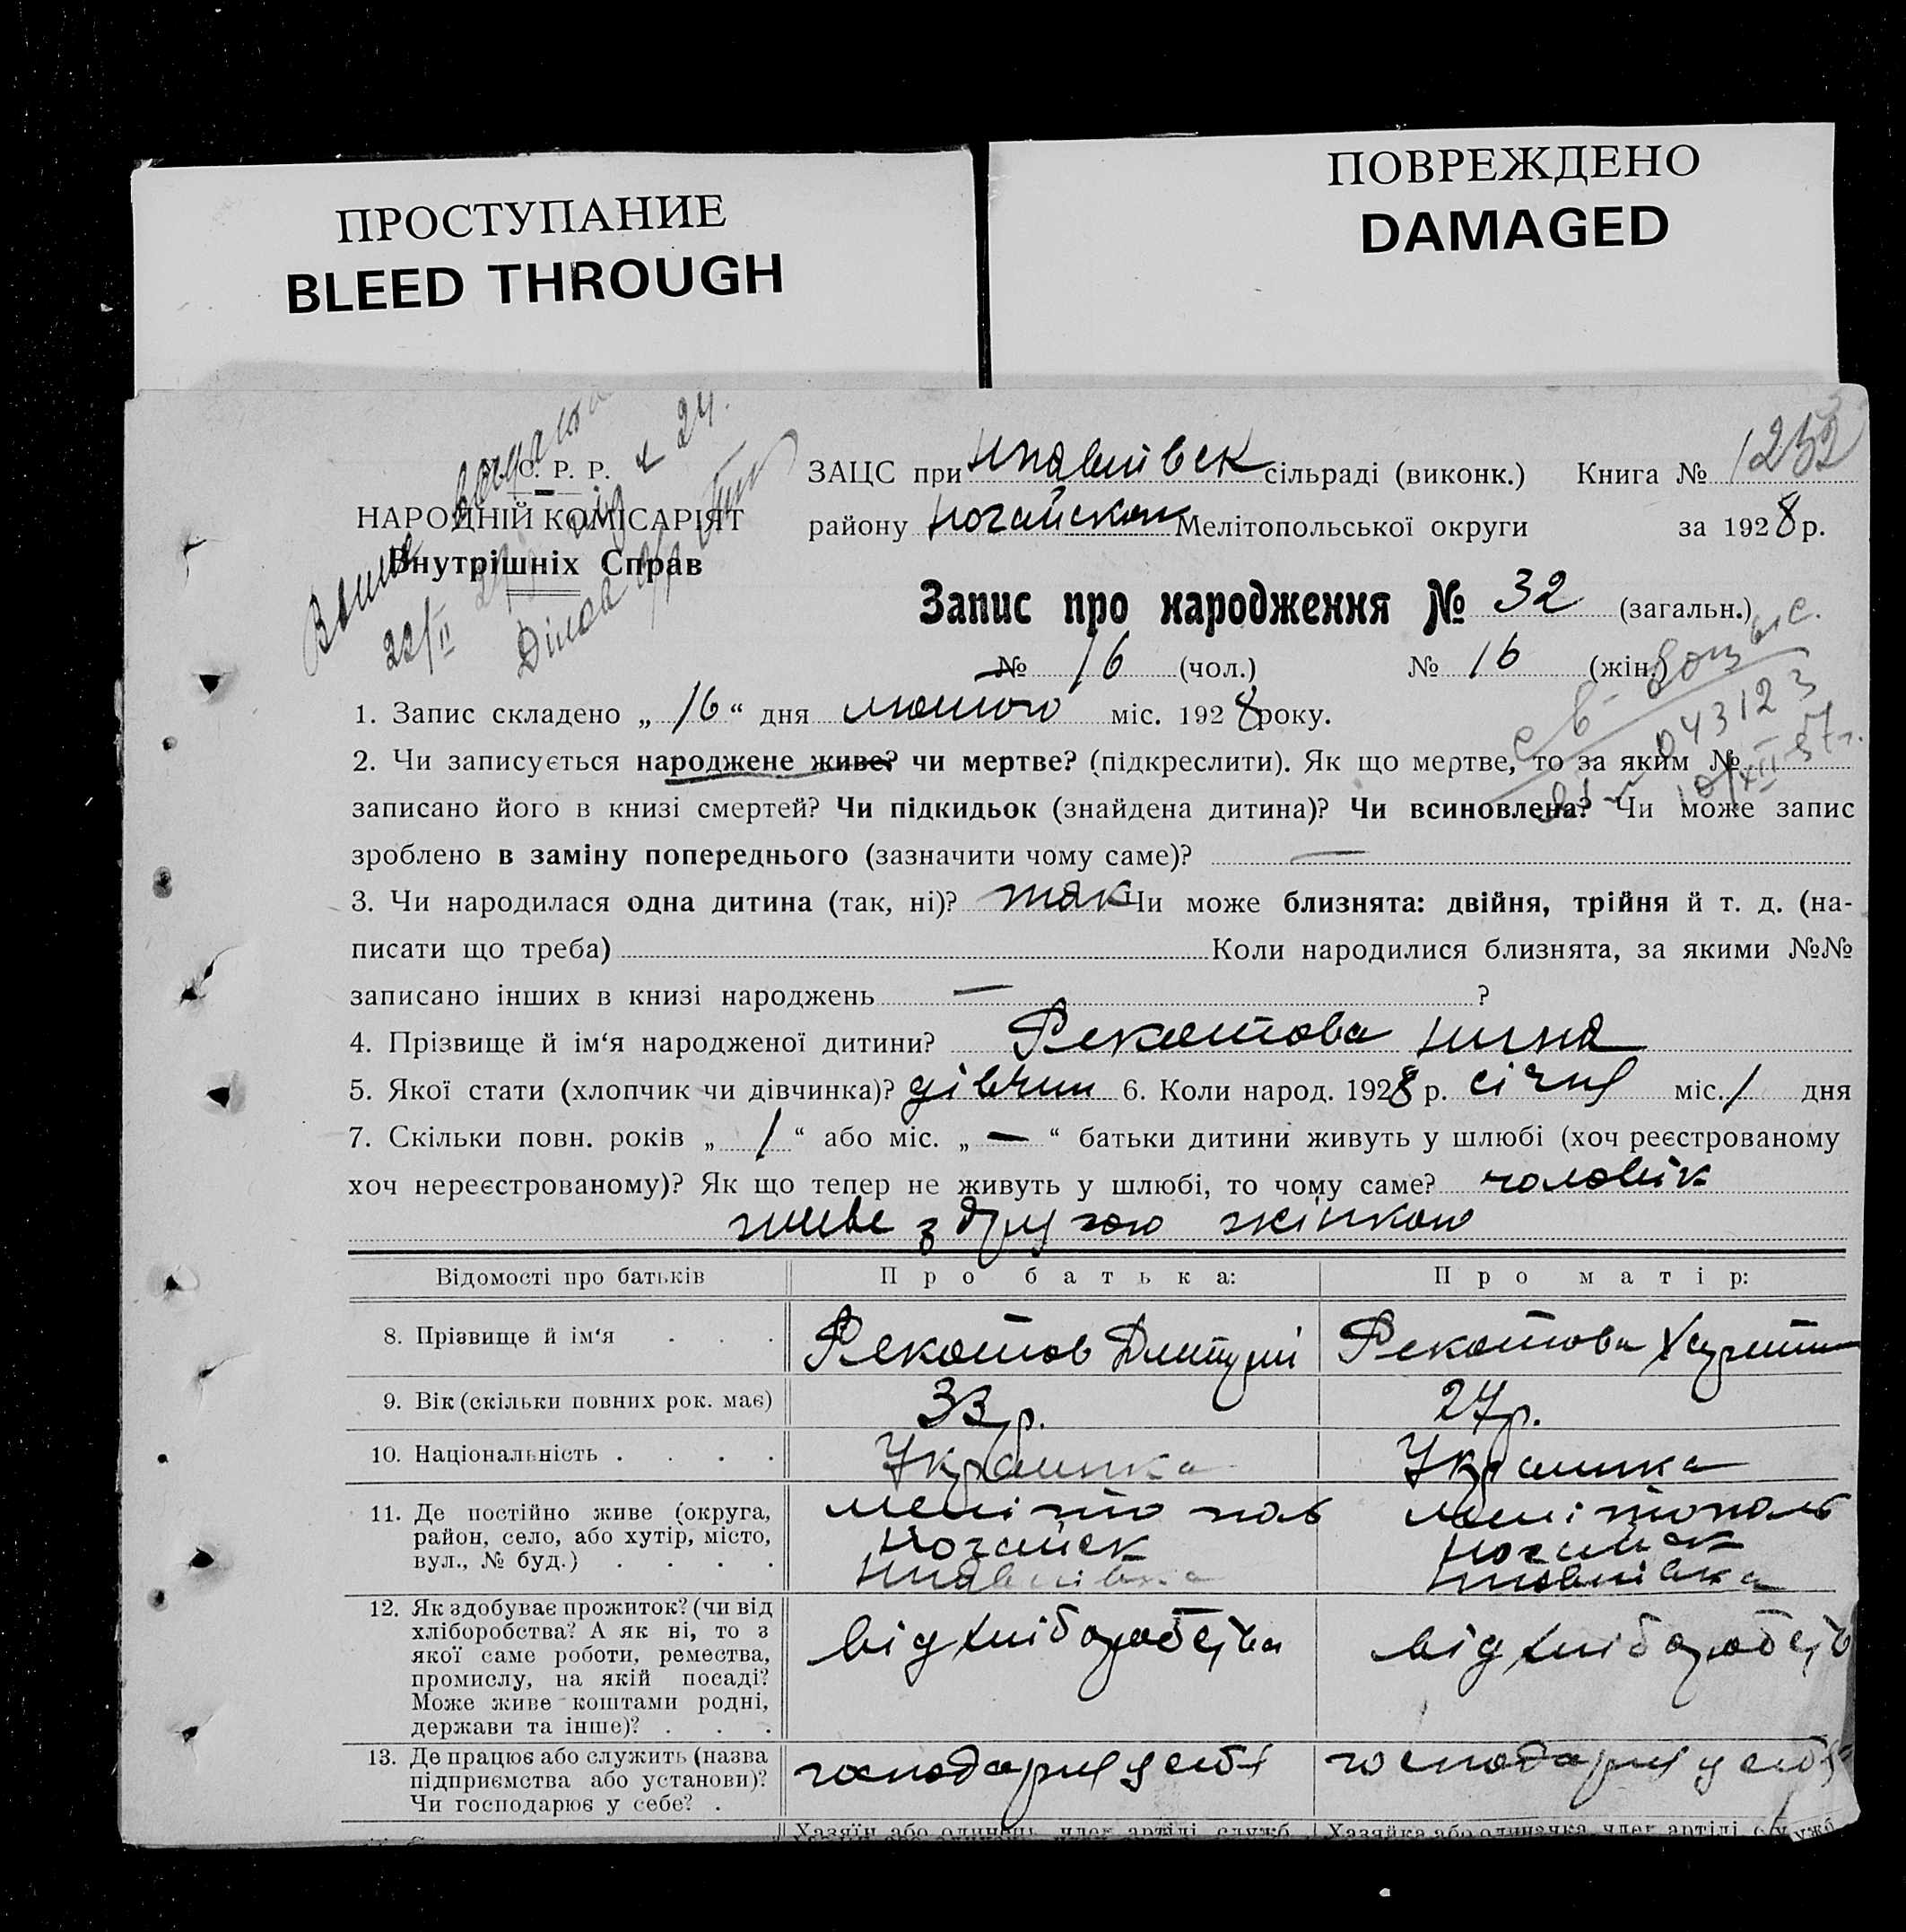 ПРОСТУПАНИЕ
BLEED THROUGH
ПОВРЕЖДЕНО
DAMAGED
С. Р. Р.
НАРОДНІЙ КОМІСАРІЯТ
Внутрішніх Справ
ЗАЦС при сільраді (виконк.) Книга № 1252
району Ногайськ Мелітопольської округи за 1928 р.
Запис про народження № 32 (загальн.)
№ 16 (чол.) № 16 (жін.)
043123
1. Запис складено „ 16 “ дня лютого міс. 1928 року.
2. Чи записується народжене живе? чи мертве? (підкреслити). Як що мертве, то за яким №
записано його в книзі смертей? Чи підкидьок (знайдена дитина)? Чи всиновлена? Чи може запис
зроблено в заміну попереднього (зазначити чому саме)? —
3. Чи народилася одна дитина (так, ні)? так Чи може близнята: двійня, трійня й т. д. (на-
писати що треба) Коли народилися близнята, за якими №№
записано інших в книзі народжень — ?
4. Прізвище й ім‘я народженої дитини? Рекотова Нина
5. Якої стати (хлопчик чи дівчинка)? дівчин 6. Коли народ. 1928 р. січня міс. 1 дня
7. Скільки повн. років „ 1 “ або міс. „ — “ батьки дитини живуть у шлюбі (хоч реєстрованому
хоч нереєстрованому)? Як що тепер не живуть у шлюбі, то чому саме? чоловік
живе з другою жінкою
Відомості про батьків Про батька: Про матір:
8. Прізвище й ім‘я . . . Рекотов Дмитрий Рекотова
9. Вік (скільки повних рок. має) 33 р. 27 р.
10. Національність . . . . Українка Українка
11. Де постійно живе (округа,
район, село, або хутір, місто,
вул., № буд.) . . . .
Мелітополь
Ногайск
Мелітополь
Ногайск
12. Як здобуває прожиток? (чи від
хліборобства? А як ні, то з
якої саме роботи, ремества,
промислу, на якій посаді?
Може живе коштами родні,
держави та інше)? . . .
від хліборобства
від хліборобств
13. Де працює або служить (назва
підприємства або установи)?
Чи господарює у себе? .
господарня у себі
господарня у себі
Хазяїн або одинець, член артілі, служб.
Хазяйка або одиначка, член артілі, служб.